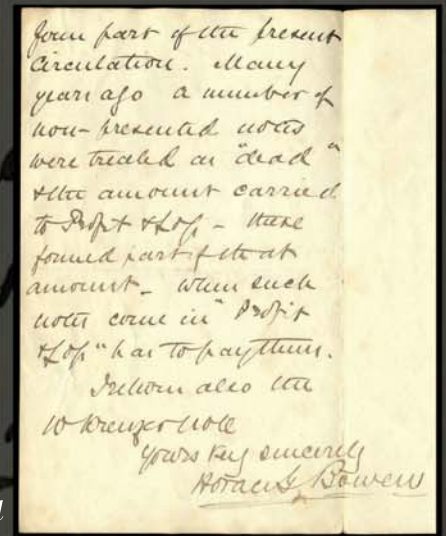 form part of the present
Circulation. Many
years ago a number of
non-presented notes
were treated as "dead"
& the amount carried
to Profit & Loss - these
formed part of that
amount - when such
notes come in "Profit
& Loss" has to pay them.
I return also the
10 Kreuzer Note
Yours very sincerely
Horace G Bowen